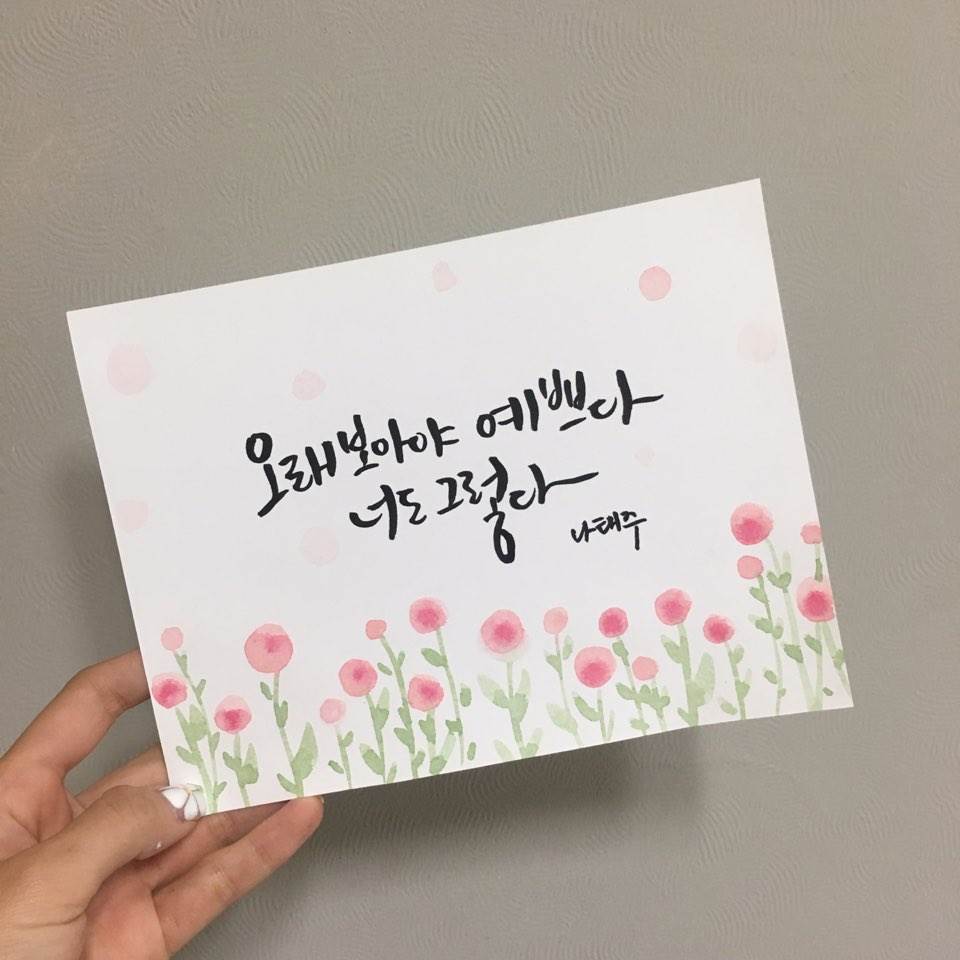 오래보아야 예쁘다
너도 그렇다
나태주